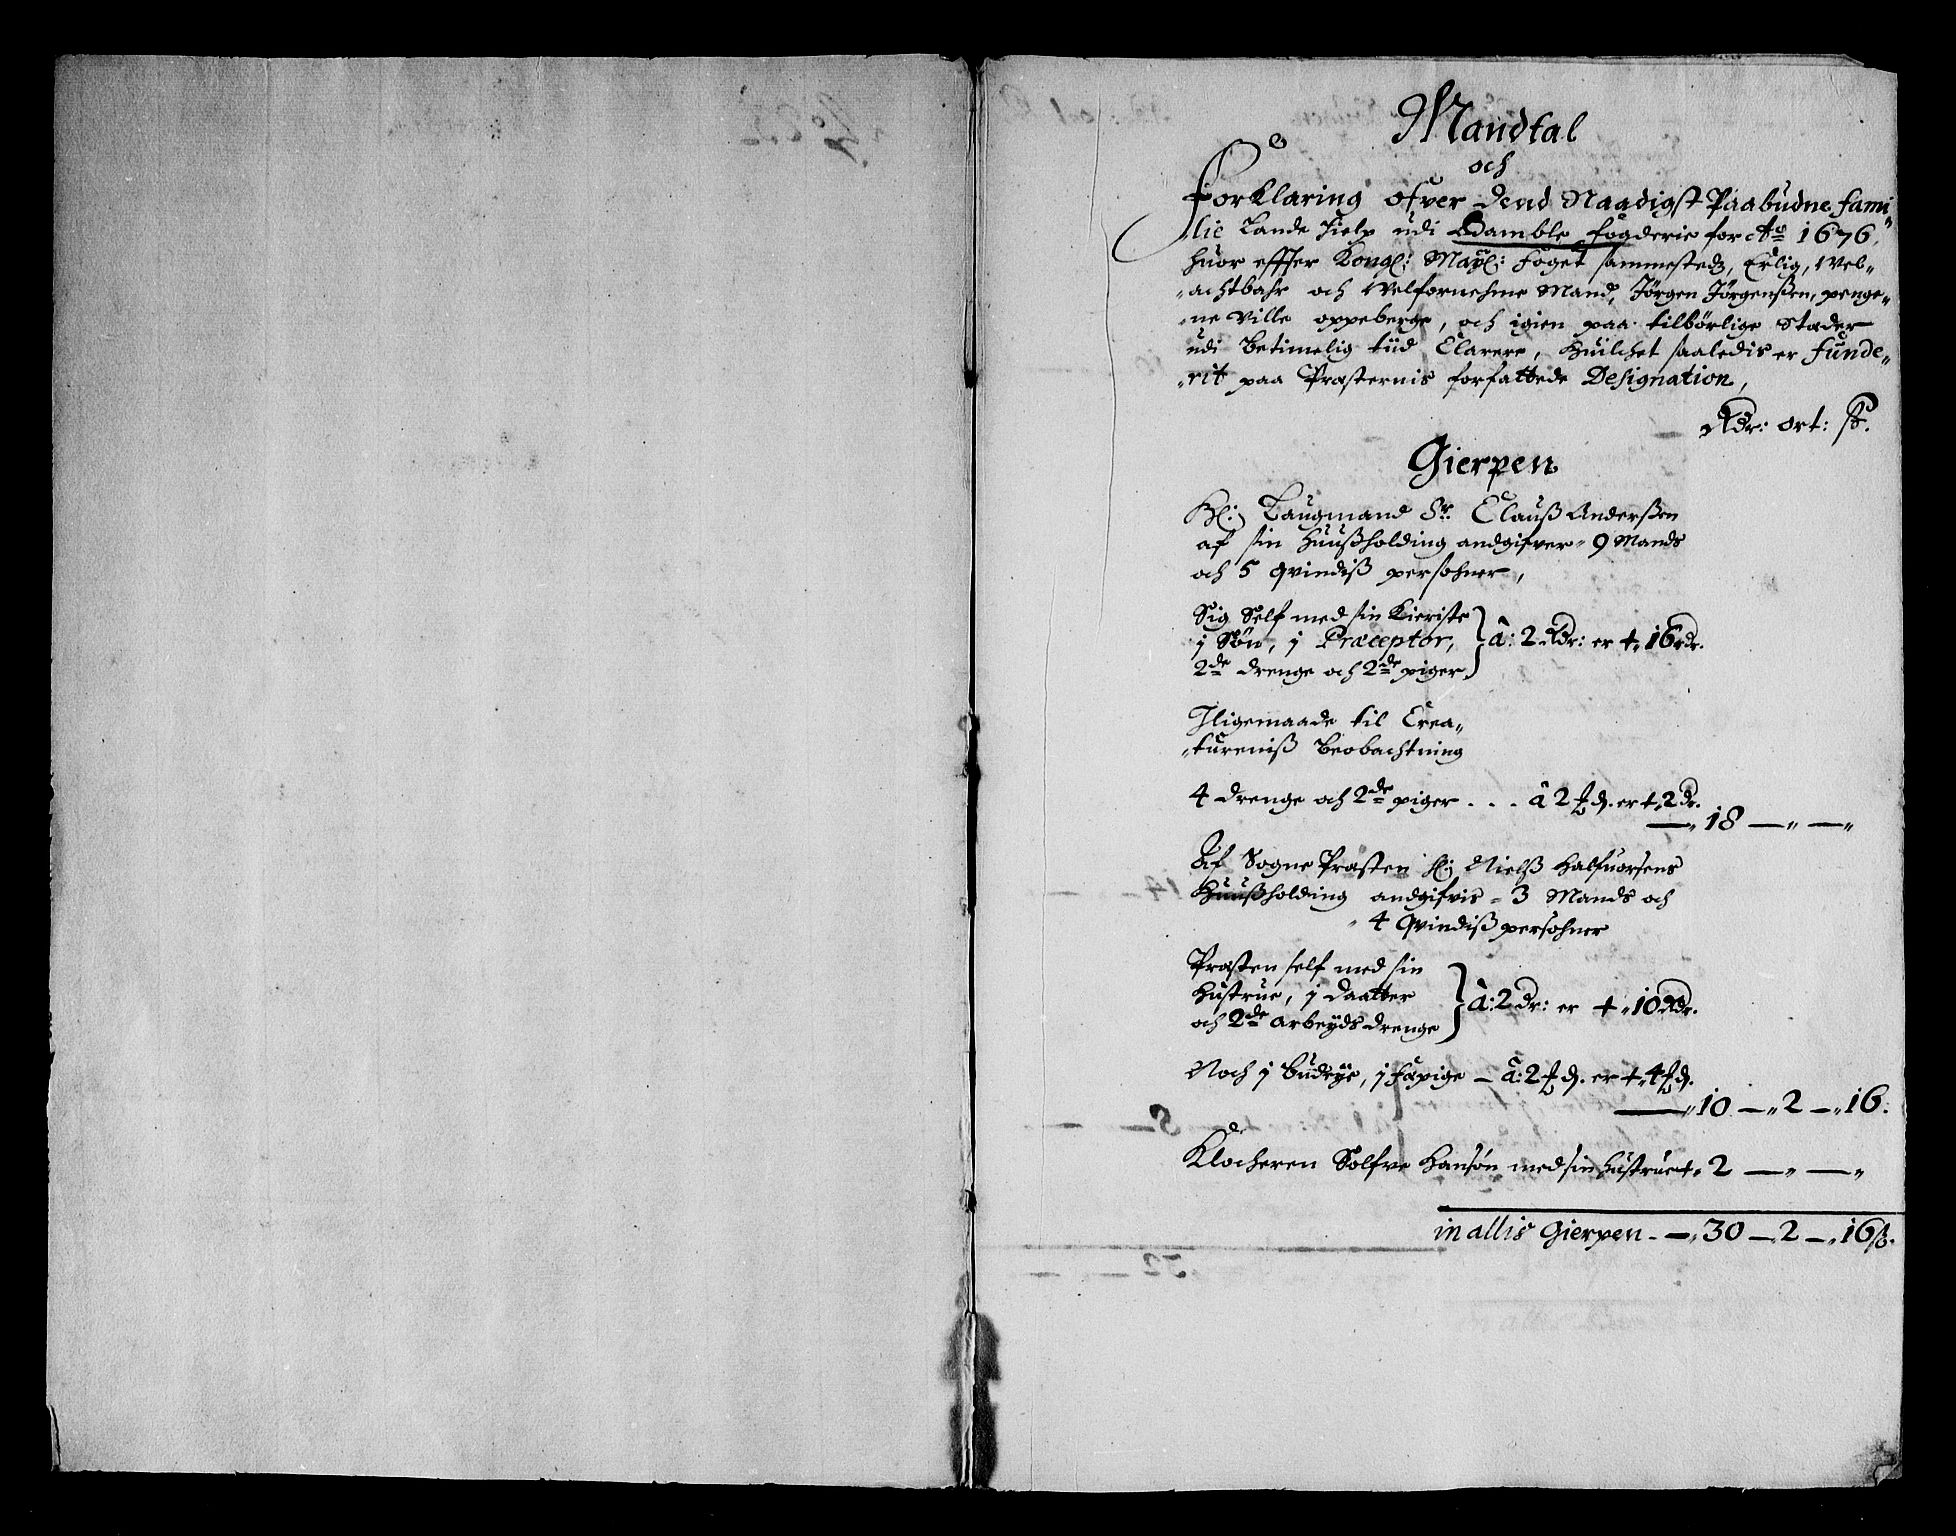 Mandtal
och
forKlaring ofver dend Naadigst Paabudne fami„
„lie Lande Hielp udi Bamble fogderie for Ao 1676.
huor effter Kongl: Mayt: foget sammestedz, Erlig, Wel„
„achtbahr och Welfornehme Mand, Jörgen Jörgenßen, penge„
„ne ville oppeberge, och igien paa tilbörlige Stæder
udi betimelig tiid Clarere, huilchet saaledis er funde„
„rit paa Præsternis forfattede Designation,
Rdr: ort: ß.
Gierpen
Hl: Laugmand Sr. Clauß Anderßen
af sin Huußholding andgifver „ 9 Mands
och 5 qvindiß persohner,
Sig Self med sin Kieriste
j Sön, j Præceptor,
2de drenge och 2de piger
â: 2 Rdr: er +„ 16 rdr.
Iligemaade til Crea„
„tureniß beobachtning
4 drenge och 2de piger . . . â 2 ß d. er + „ 2 dr.
— „ 18 — „ — „
Af Sogne Præsten Hr: Nielß Halfuorsens
Huußholding andgifvis „ 3 Mands och
„ 4 Qvindiß persohner
Præsten self med sin
Hustrue, j daatter
och 2de arbeyds drenge
â: 2 dr: er + „ 10 Rdr.
Noch j budeye, j fæpige — â: 2 ß d. er + „ 4 ß d.
— „ 10 — „ 2 — „ 16.
Klocheren Solfve Hansön med sin Hustrue + „ 2 — „ — „
in allis Gierpen - — „ 30 — „ 2 — „ 16 ß.